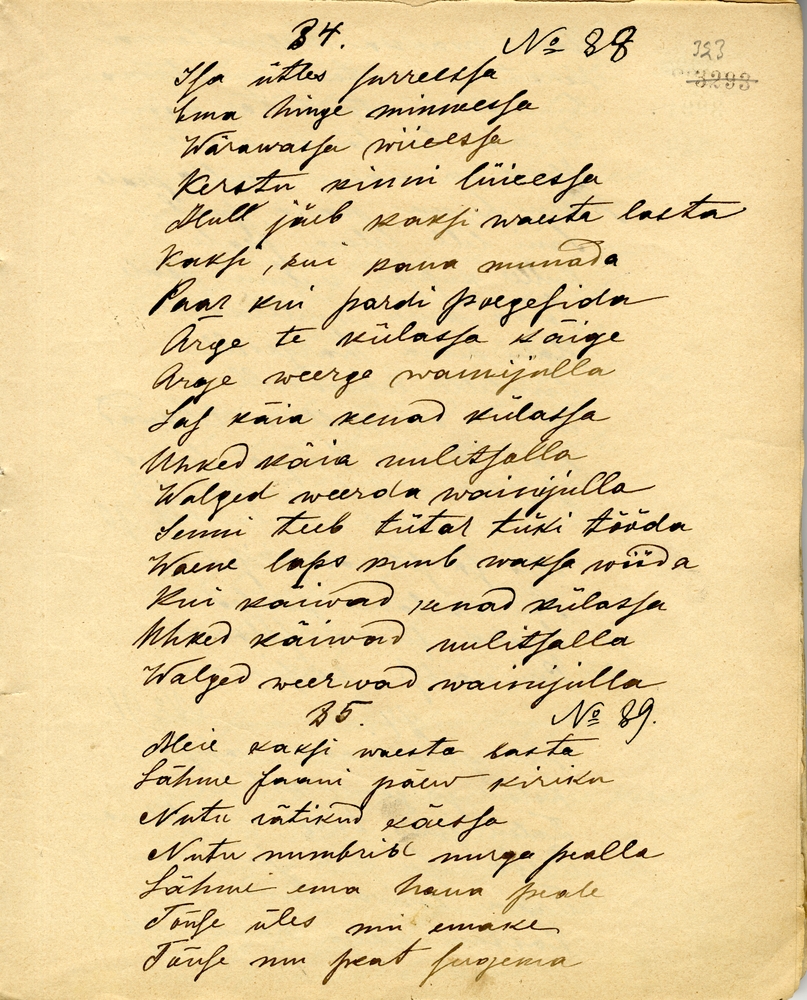 34. No 88
323
3293
Isa ütles surressa
Ema hinge minnessa
Wärawassa wiiessa
Kerstu kinni lüiessa
Mull jäeb kaksi waesta lasta
Kaksi, kui kana munada
Paar kui pardi poegesida
Ärge te külassa käige
Ärge weerge wainijulla
Las käia kenad külassa
Uhked käia uulitsalla
Walged weerda wainijulla
Senni teeb tütar tüki tööda
Waene laps kuub waksa wööda
Kui käiwad kenad külassa
Uhked käiwad uulitsalla
Walged weerwad wainijulla
35. No 89.
Meie kaksi waesta lasta
Lähme Jaani päew kiriku
Nutu rätikud käessa
Nutu numbrid nurga pealla
Lähme ema haua peale
Tõuse üles mu emake
Tõuse mu peat sugema